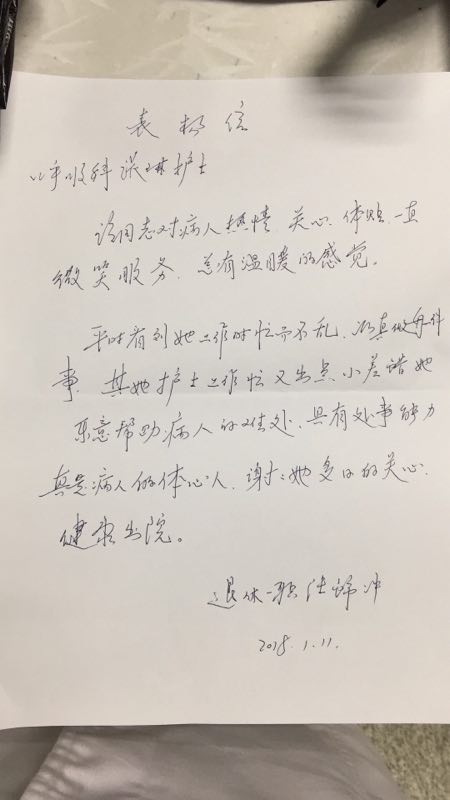 表扬信
呼吸科 琳护士
该同志对病人热情 关心、体贴、一直
微笑服务，总有温暖的感觉。
平时看到她工作时忙而不乱、认真做每件
事，其她护士工作忙又出点小差错她
乐意帮助病人的难处、具有处事能力
真是病人的体心人、谢谢她多日的关心、
健康出院。
退休一职
2018.1.11.